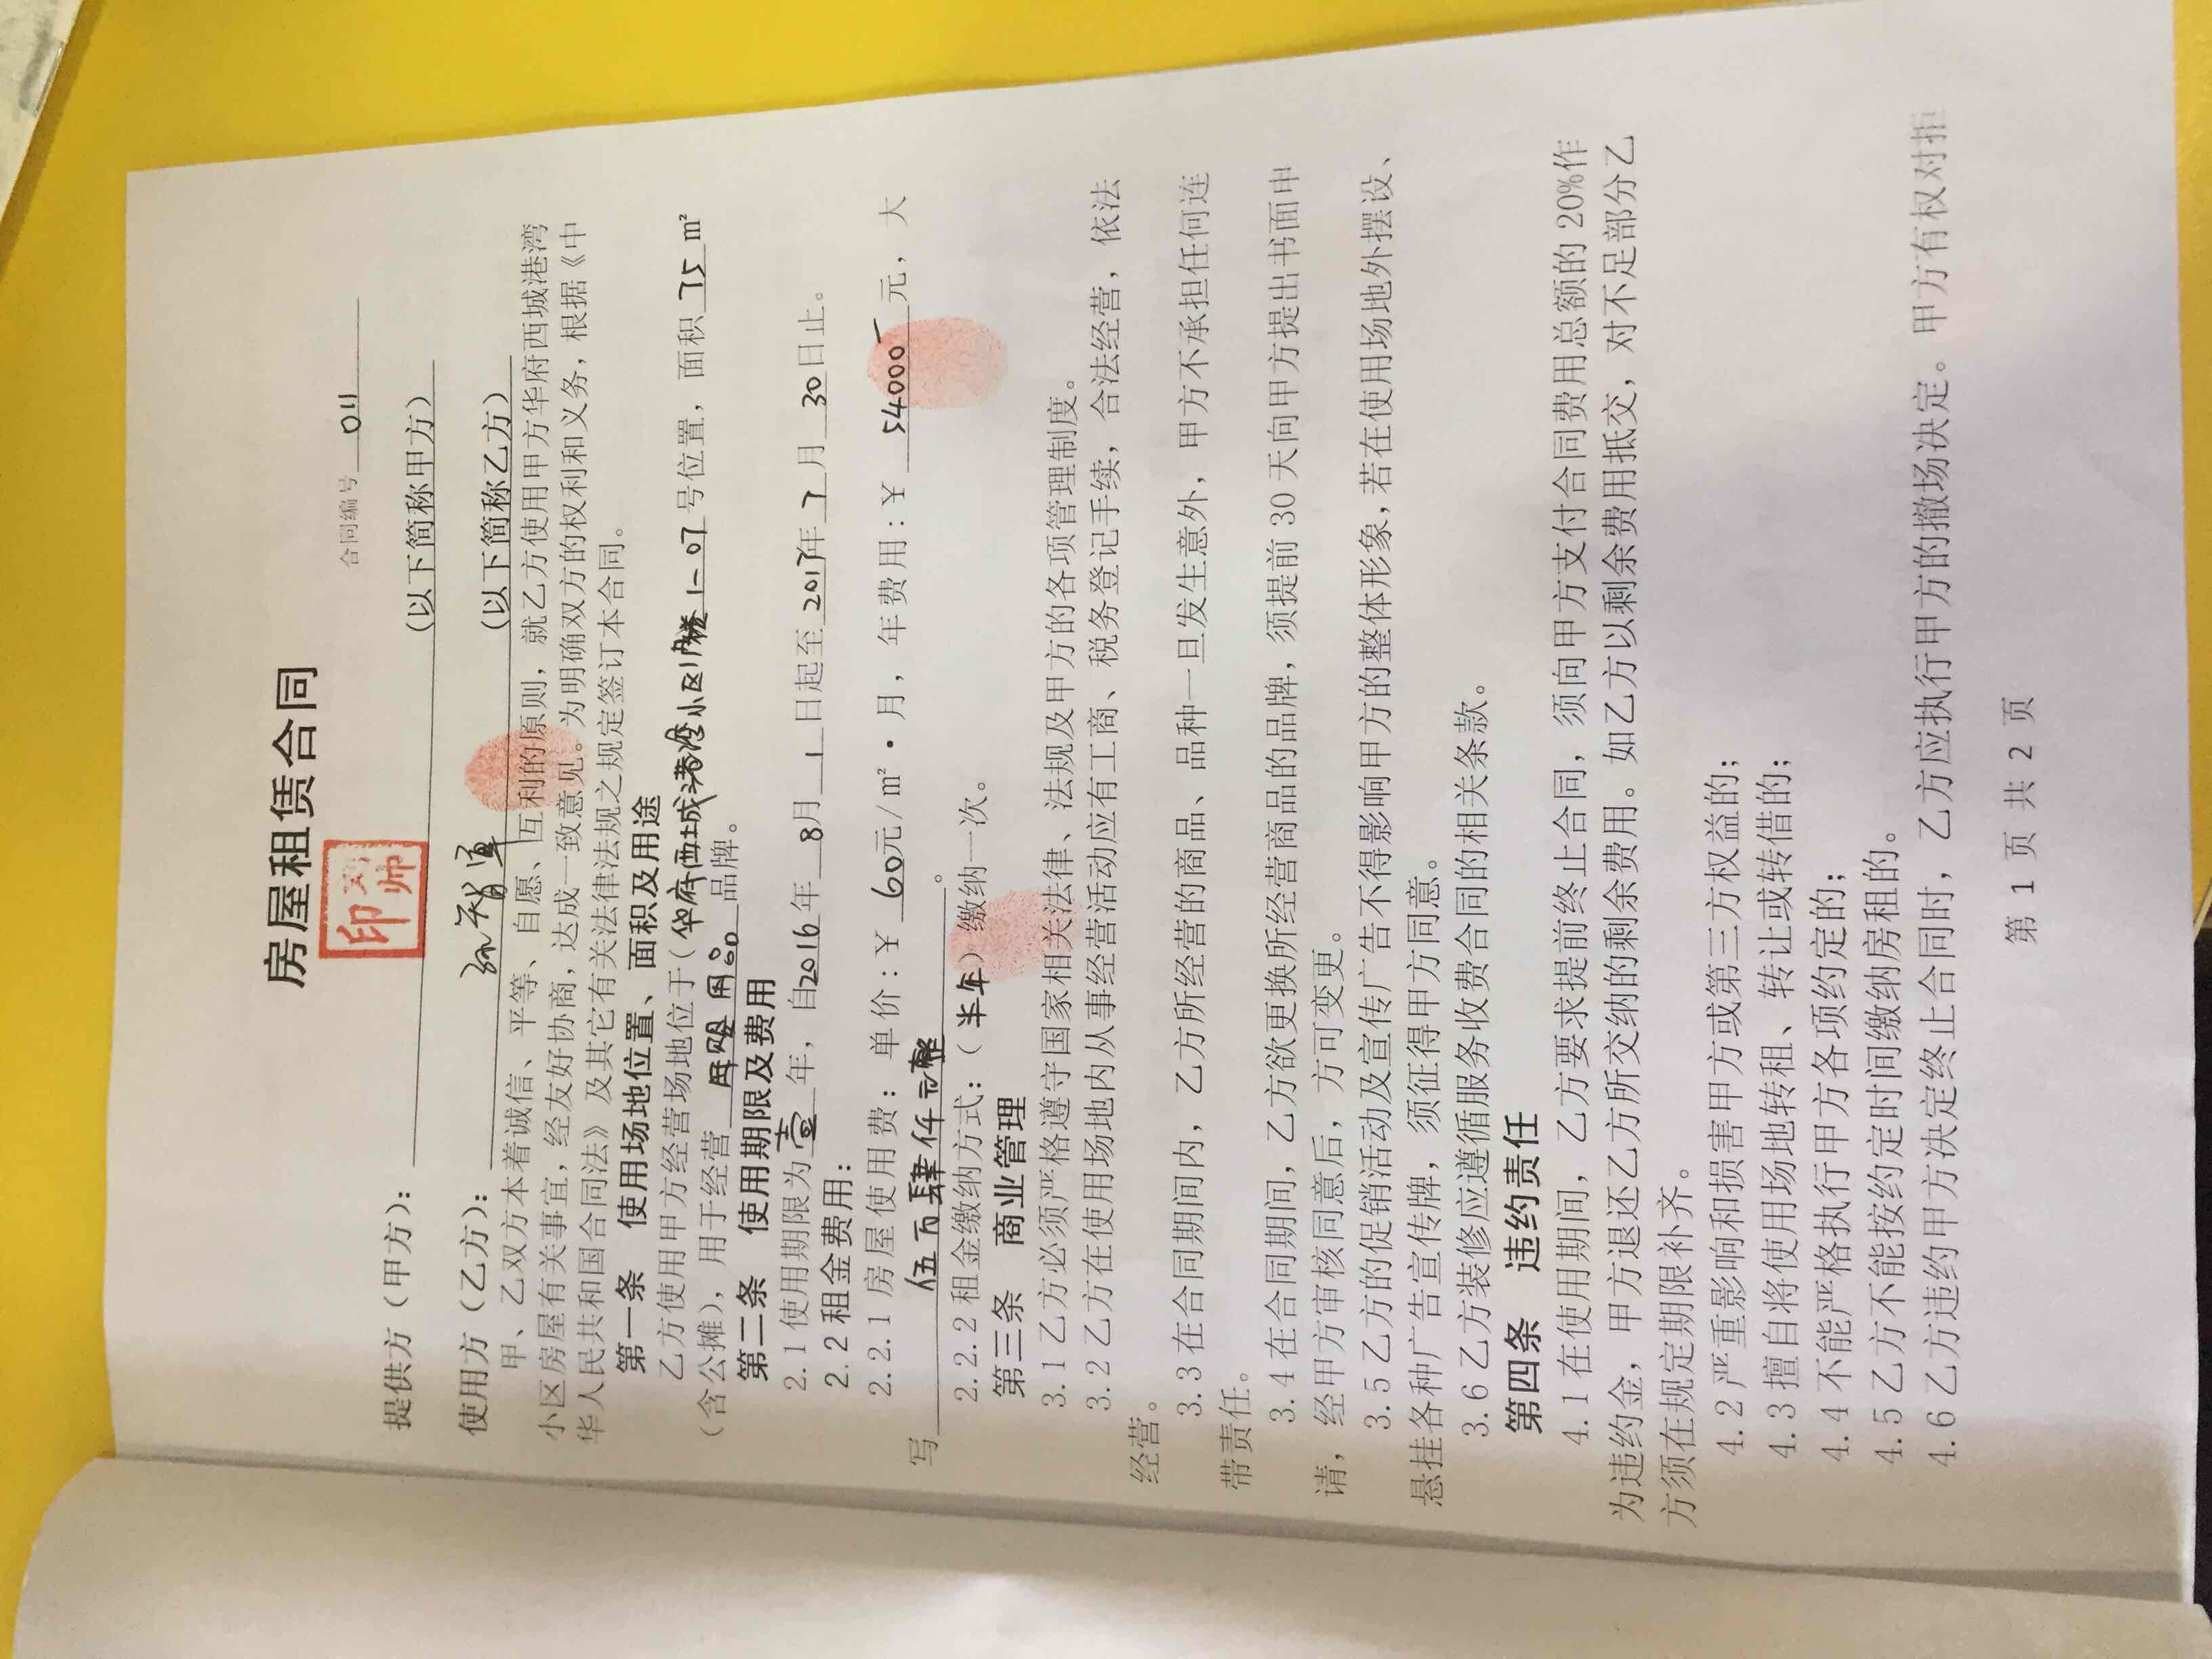 房屋租赁合同
合同编号 011
刘帅印
提供方（甲方）： （以下简称甲方）
使用方（乙方）： 孙智军 （以下简称乙方）
甲、乙双方本着诚信、平等、自愿、互利的原则，就乙方使用甲方华府西城港湾
小区房屋有关事宜，经友好协商，达成一致意见。为明确双方的权利和义务，根据《中
华人民共和国合同法》及其它有关法律法规之规定签订本合同。
第一条 使用场地位置、面积及用途
乙方使用甲方经营场地位于（华府西城港湾小区 1-07号位置，面积 75 m²
（含公摊），用于经营 母婴用品 品牌。
第二条 使用期限及费用
2.1使用期限为 壹 年，自2016年 8月 1 日起至 2017年 7 月 30日止。
2.2租金费用：
2.2.1房屋使用费：单价：￥ 60元/m²·月，年费用：￥ 54000 元，大
写 伍万肆仟元整 。
2.2.2租金缴纳方式：（半年）缴纳一次。
第三条 商业管理
3.1乙方必须严格遵守国家相关法律、法规及甲方的各项管理制度。
3.2乙方在使用场地内从事经营活动应有工商、税务登记手续，合法经营，依法
经营。
3.3在合同期间内，乙方所经营的商品、品种一旦发生意外，甲方不承担任何连
带责任。
3.4在合同期间，乙方欲更换所经营商品的品牌，须提前30天向甲方提出书面申
请，经甲方审核同意后，方可变更。
3.5乙方的促销活动及宣传广告不得影响甲方的整体形象，若在使用场地外摆设、
悬挂各种广告宣传牌，须征得甲方同意。
3.6乙方装修应遵循服务收费合同的相关条款。
第四条 违约责任
4.1在使用期间，乙方要求提前终止合同，须向甲方支付合同费用总额的20%作
为违约金，甲方退还乙方所交纳的剩余费用。如乙方以剩余费用抵交，对不足部分乙
方须在规定期限补齐。
4.2严重影响和损害甲方或第三方权益的；
4.3擅自将使用场地转租、转让或转借的；
4.4不能严格执行甲方各项约定的；
4.5乙方不能按约定时间缴纳房租的。
4.6乙方违约甲方决定终止合同时，乙方应执行甲方的撤场决定。甲方有权对拒
第 1 页 共 2 页